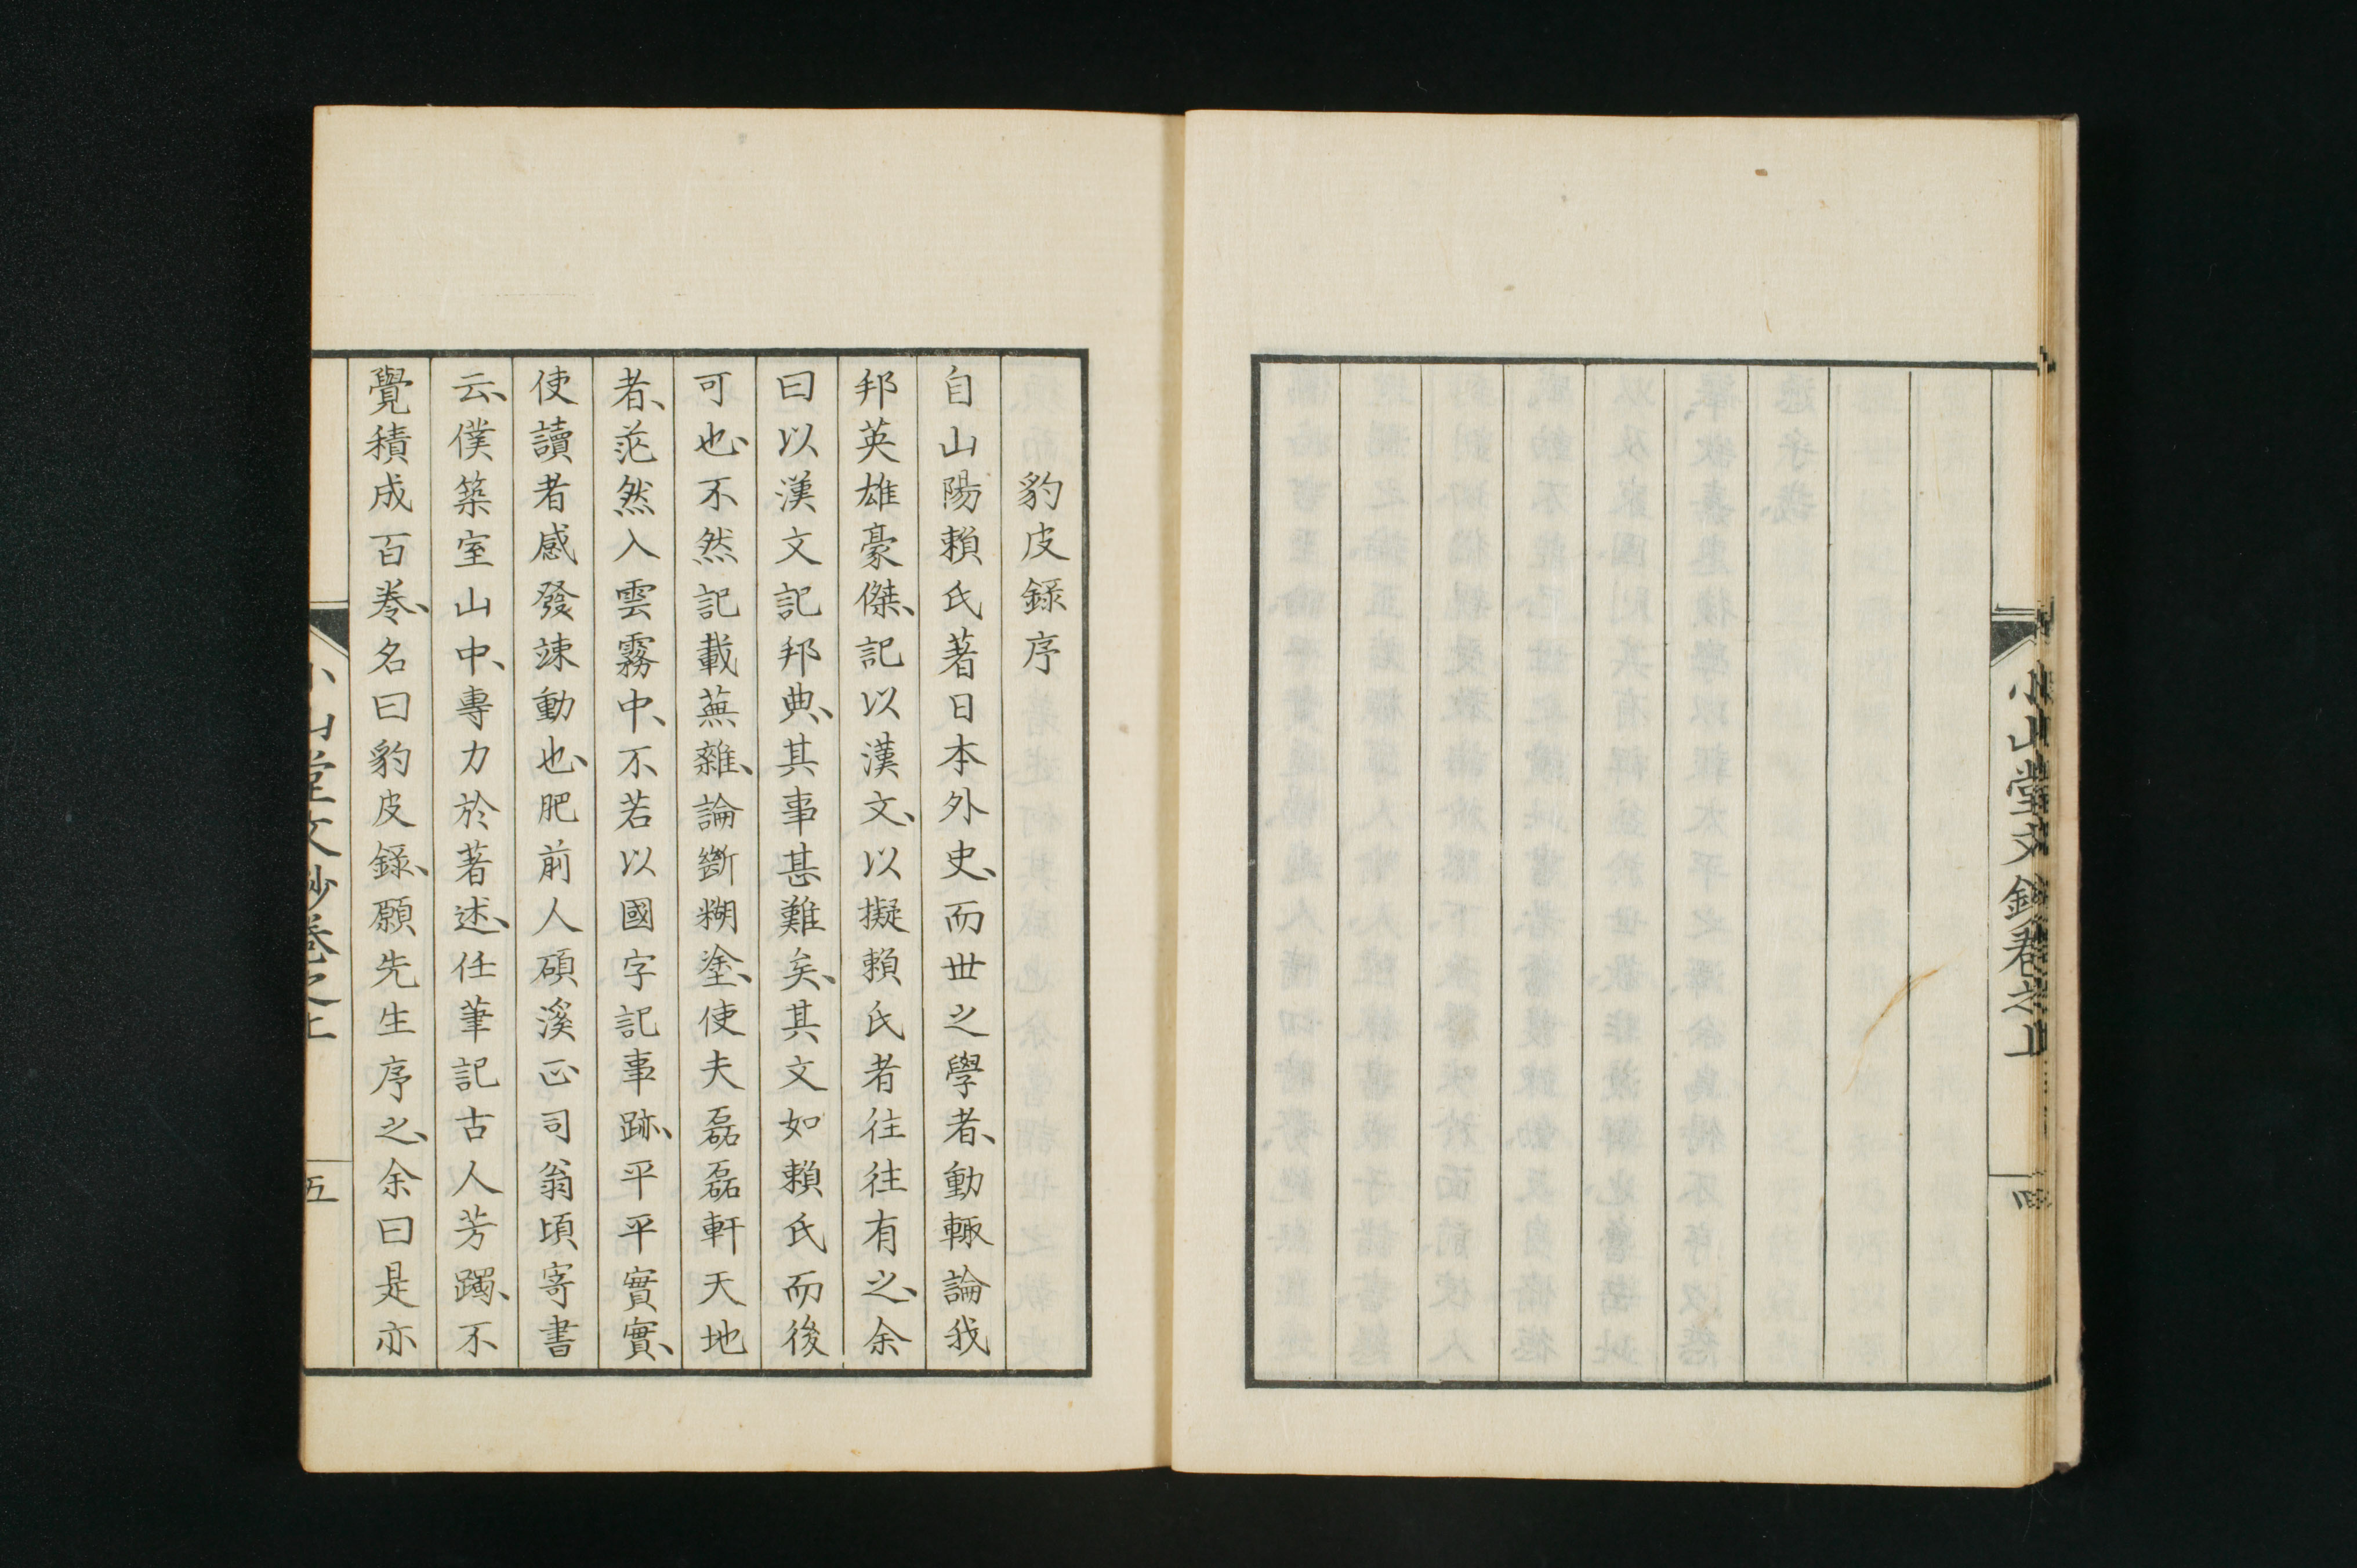 小山堂文鈔卷之上
四
豹皮錄序
自山陽賴氏著日本外史、而世之學者、動輙論我
邦英雄豪傑、記以漢文、以擬賴氏者往往有之、余
曰以漢文記邦典、其事甚難矣、其文如賴氏而後
可也、不然記載蕪雜、論斷糊塗、使夫磊磊軒天地
者、茫然入雲霧中、不若以國字記事跡、平平實實、
使讀者感發竦動也、肥前人碩溪正司翁頃寄書
云、僕築室山中、專力於著述、任筆記古人芳躅、不
覺積成百卷、名曰豹皮錄、願先生序之、余曰是亦
小山堂文鈔卷之上
五